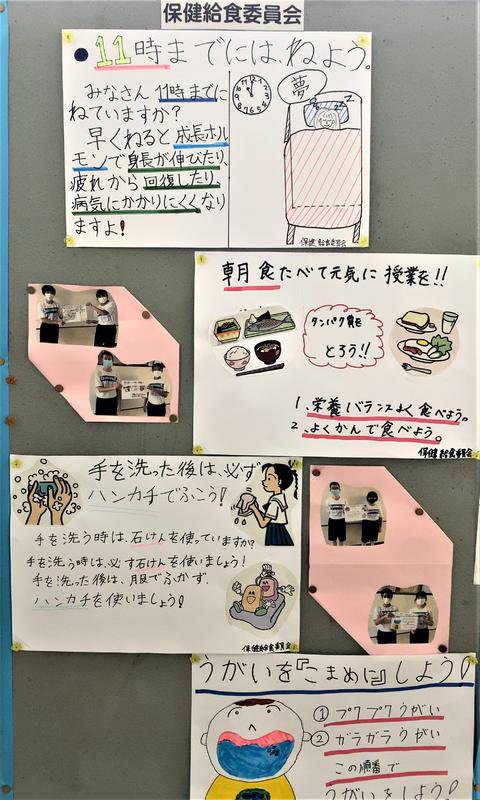 保健給食委員会
●11時までには、ねよう。
みなさん 11時までに
ねていますか?
早くねると成長ホル
モンで身長が伸びたり、
疲れから回復したり、
病気にかかりにくくなり
ますよ!
夢
zzz
保健給食委員会
朝食たべて元気に授業を!!
タンパク質を
とろう!!
1、栄養バランスよく食べよう。
2、よくかんで食べよう。
保健給食委員会
手を洗った後は、必ず
ハンカチでふこう!
手を洗う時は、石けんを使っていますか?
手を洗う時は、必ず石けんを使いましょう!
手を洗った後は、服でふかず、
ハンカチを使いましょう!
保健給食委員会
うがいを『こまめに』しよう!
① ブクブクうがい
② ガラガラうがい
この順番で
うがいをしよう!